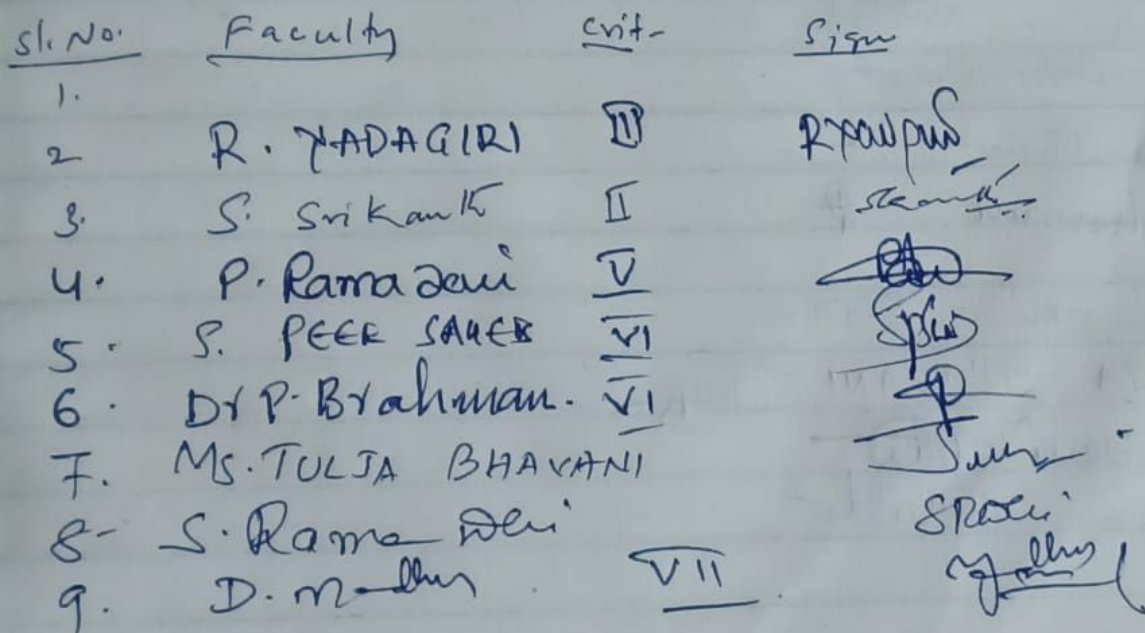 Sl. No. Faculty Crit- Sign
1.
2 R. YADAGIRI II
3. S. Srikanth II Srikanth
4. P. Rama Devi V
5. S. PEER SAHEB VI
6. Dr P. Brahman. VI
7. Ms. TULJA BHAVANI
8- S. Rama Devi SRDevi
9. D. Madhu VII